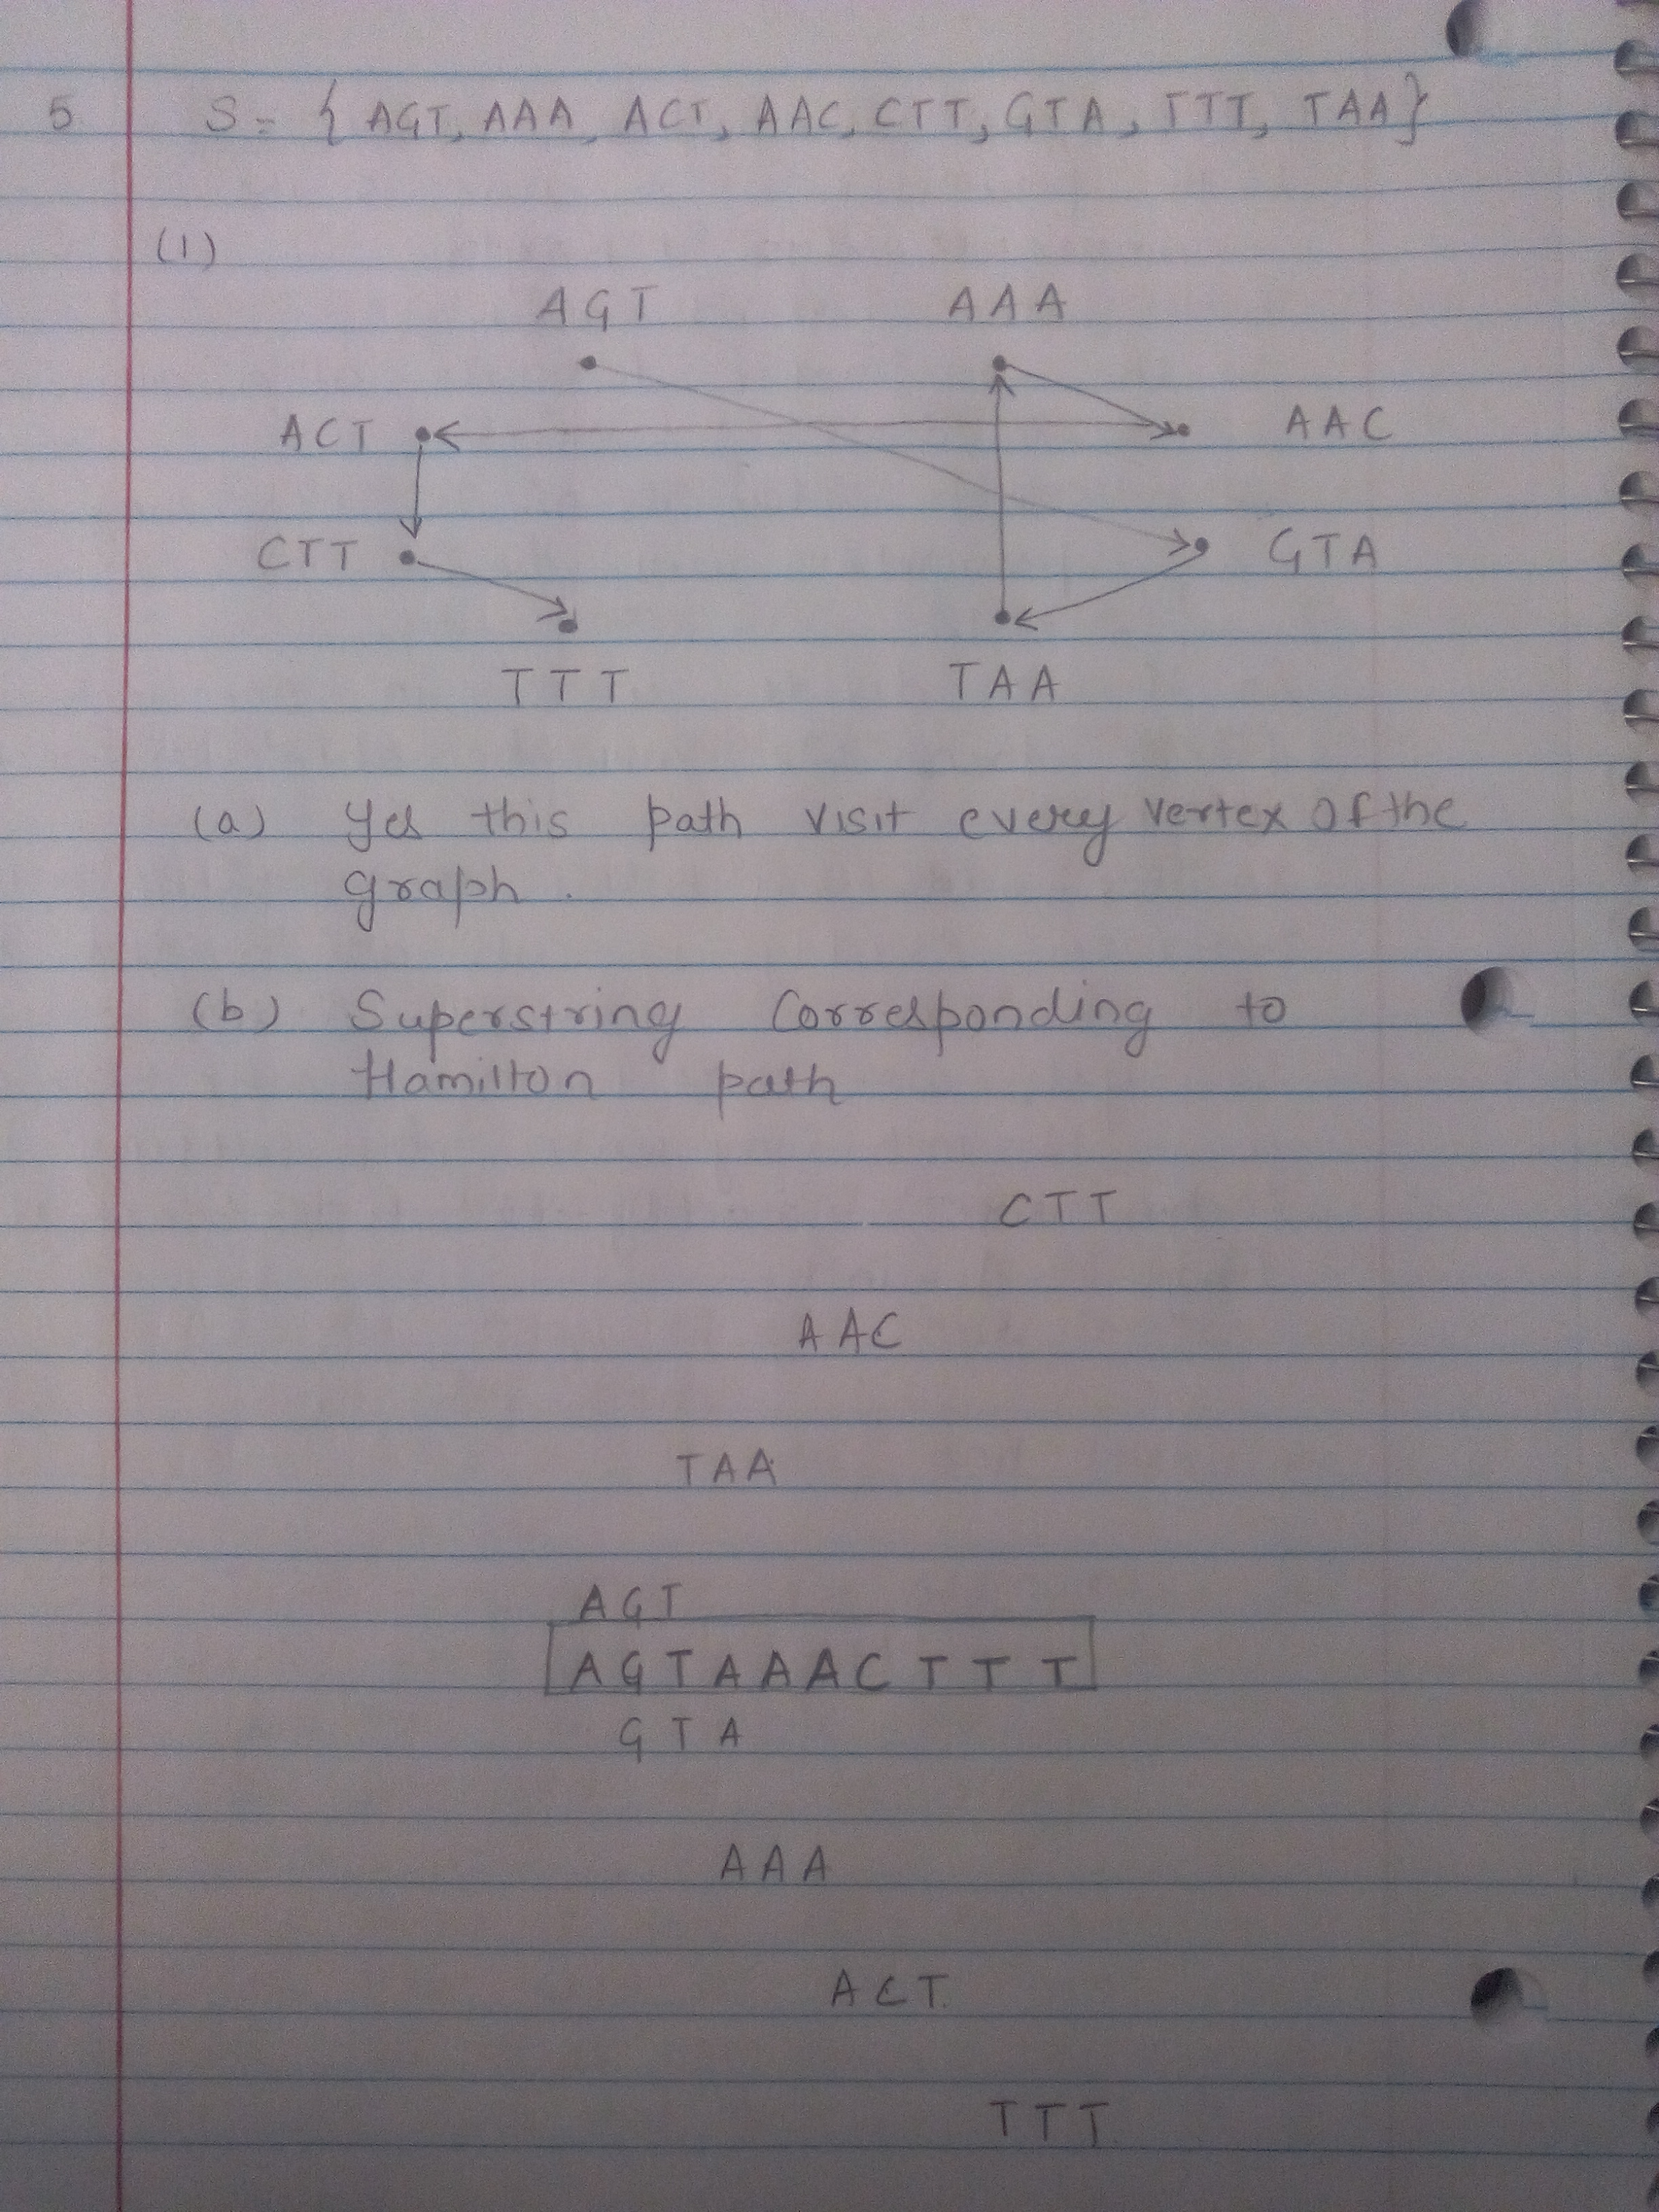 5 S = { AGT, AAA, ACT, AAC, CTT, GTA, TTT, TAA }
(1)
AGT AAA
ACT AAC
CTT GTA
TTT TAA
(a) Yes this path visit every vertex of the
graph.
(b) Superstring Corresponding to
Hamilton path
CTT
AAC
TAA
AGT
AGTAAACTTT
GTA
AAA
ACT
TTT